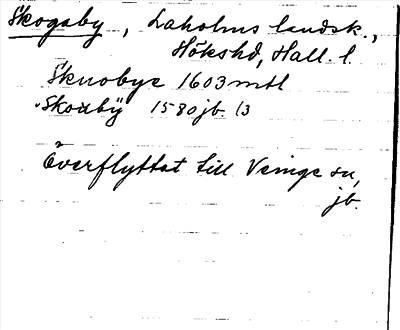 Skogaby, Laholms landsk.,
Hökshd, Hall. l.
Skuobye 1603 mtl
Skouby 1580 jb. 13
Överflyttat till Veinge sn,
jb.